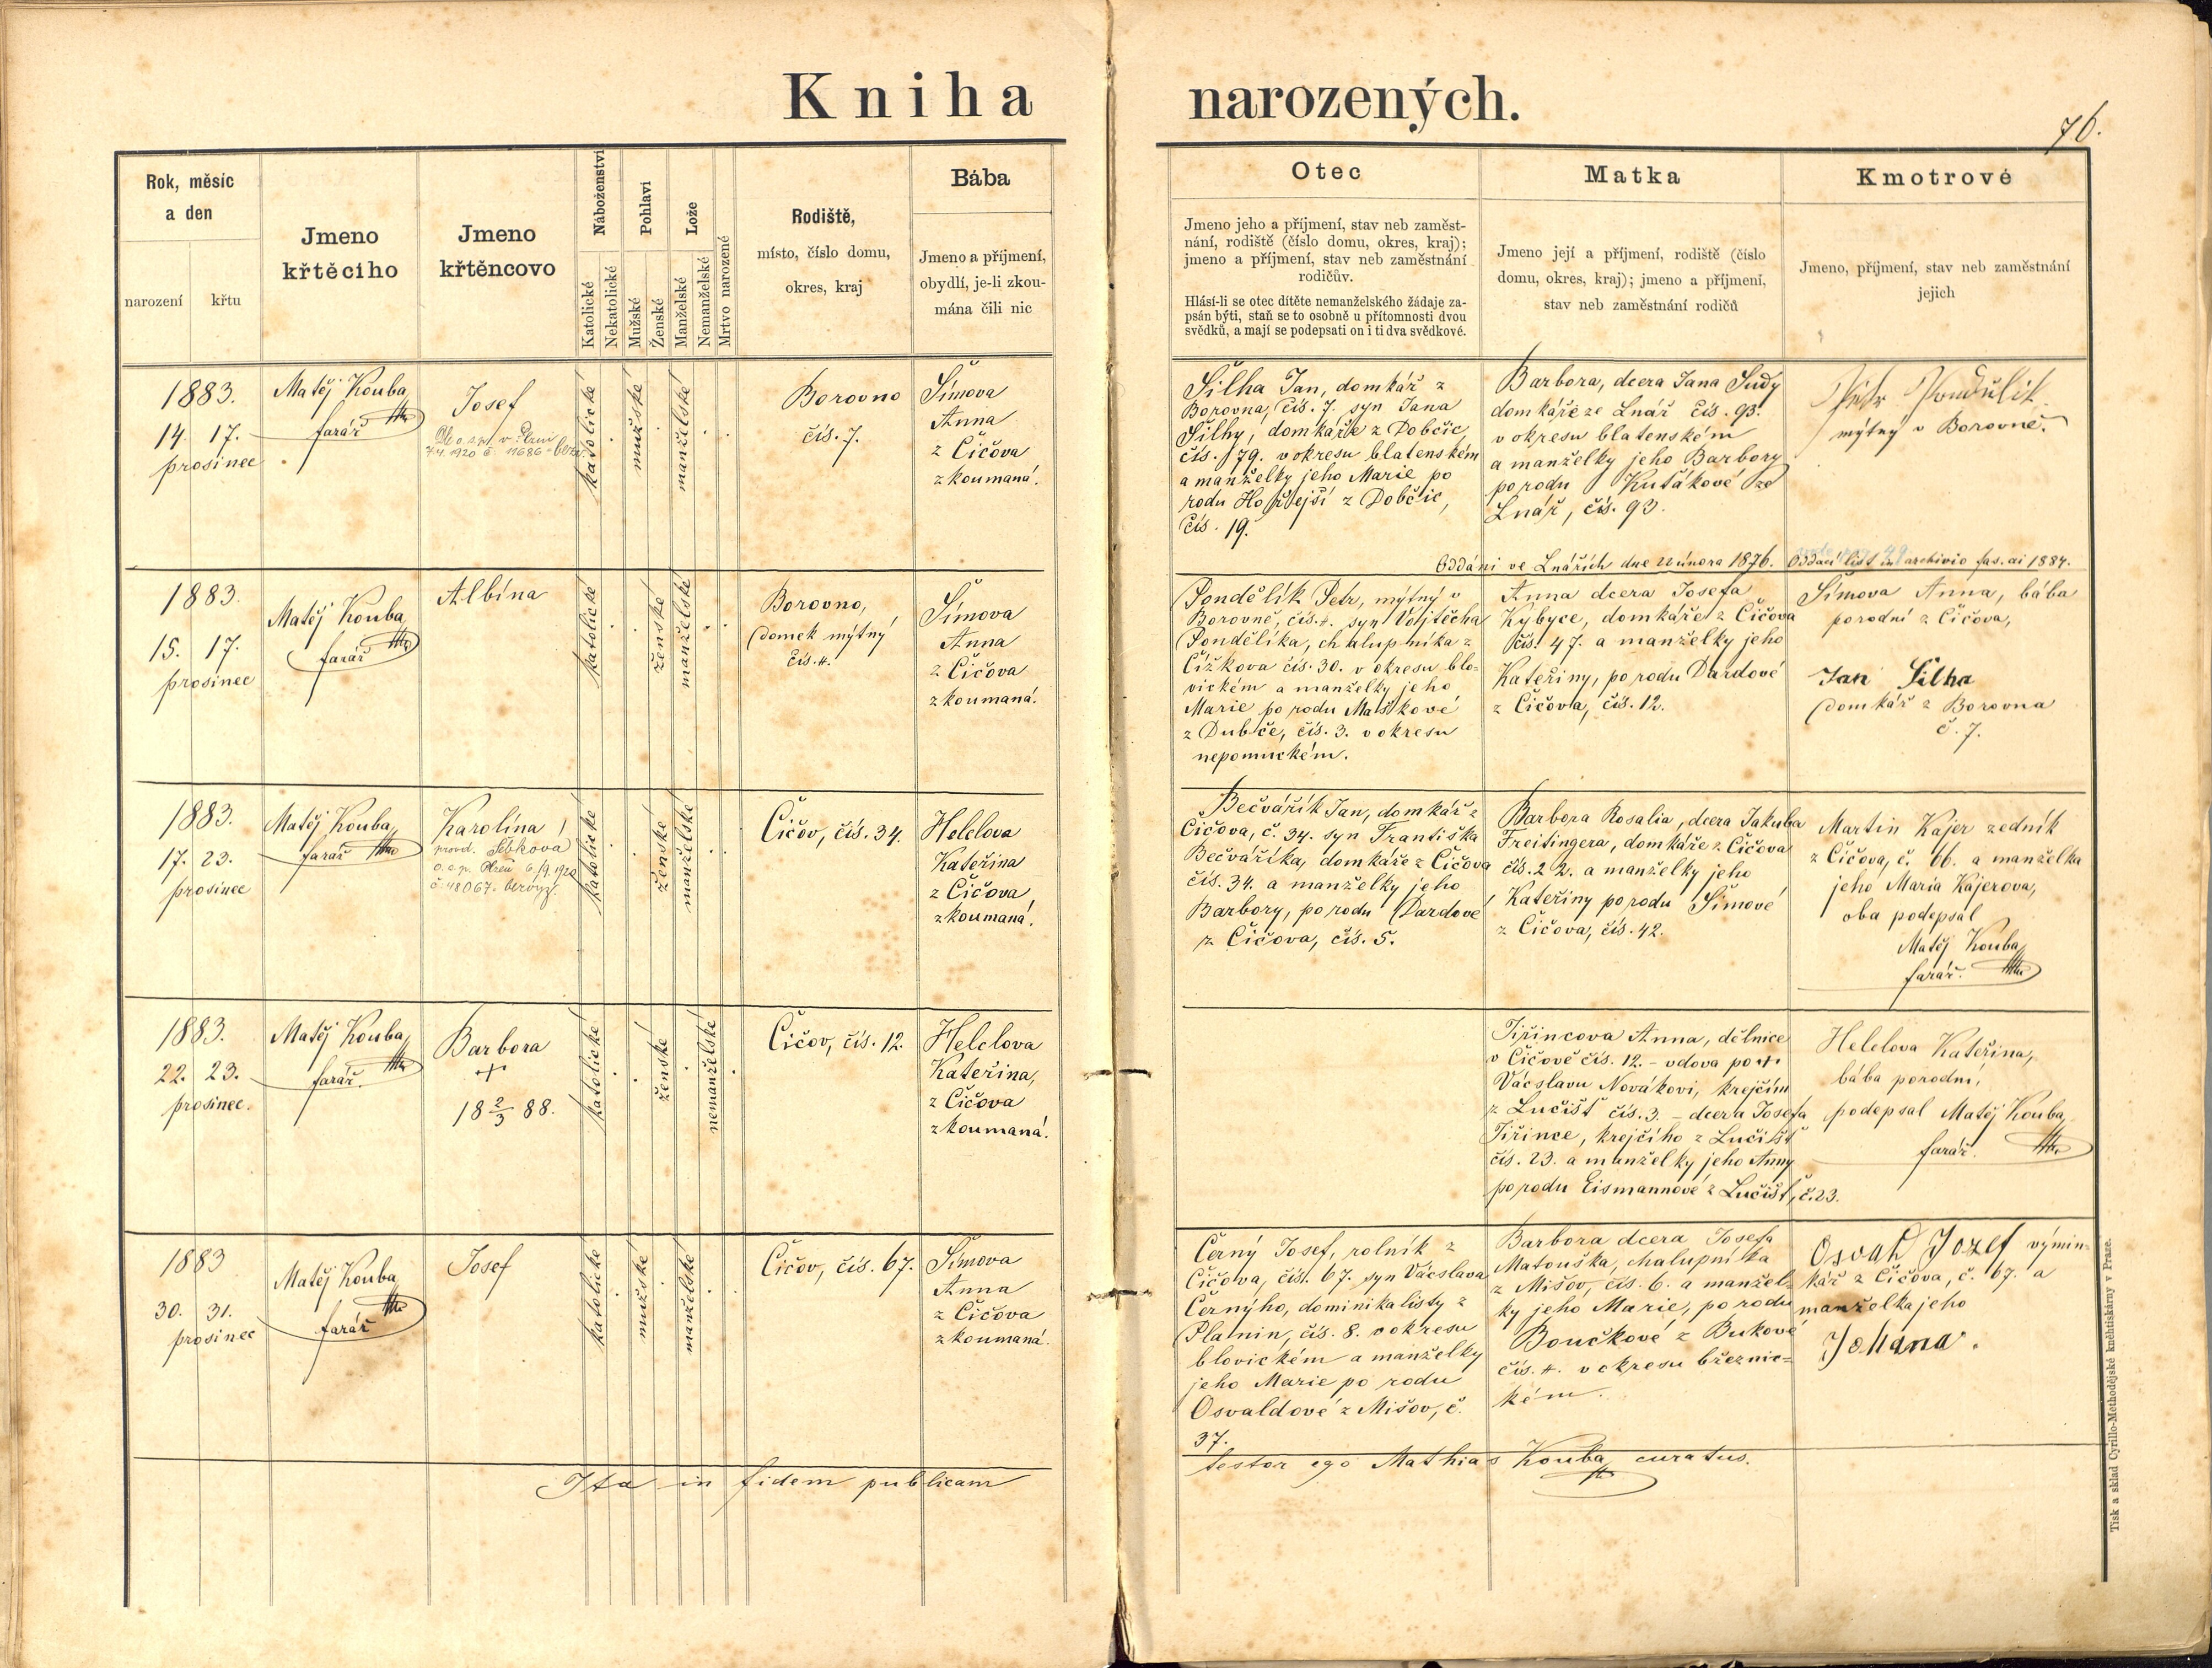 Kniha narozených.
76.
Rok, měsíc
a den
narození
křtu
Jmeno
křtěcího
Jmeno
křtěncovo
Náboženství
Katolické
Nekatolické
Pohlaví
Mužské
Ženské
Lože
Manželské
Nemanželské
Mrtvo narozené
Rodiště,
místo, číslo domu,
okres, kraj
Bába
Jmeno a příjmení,
obydlí, je-li zkou-
mána čili nic
Otec
Jmeno jeho a příjmení, stav neb zaměst-
nání, rodiště (číslo domu, okres, kraj);
jmeno a příjmení, stav neb zaměstnání
rodičův.
Hlásí-li se otec dítěte nemanželského žádaje za-
psán býti, staň se to osobně u přítomnosti dvou
svědků, a mají se podepsati on i ti dva svědkové.
Matka
Jmeno její a příjmení, rodiště (číslo
domu, okres, kraj); jmeno a příjmení,
stav neb zaměstnání rodičů
Kmotrové
Jmeno, příjmení, stav neb zaměstnání
jejich
1883.
14. 17.
prosinec
Matěj Kouba,
farář
Josef
katolické
mužské
manželské
Borovno
čís. 7.
Šímova
Anna
z Čičova
zkoumaná.
Šilha Jan, domkář z
Borovna, čís. 7. syn Jana
Šilhy, domkáře z Dobčic,
čís. 79. v okresu blatenském
a manželky jeho Marie po
rodu Hořejší z Dobčic,
čís. 19.
Barbora, dcera Jana Sudy
domkáře ze Lnář čís. 93.
v okresu blatenském
a manželky jeho Barbory
porodu Kutákové ze
Lnář, čís. 93.
Petr Pondělík
mýtný v Borovně.
Oddáni ve Lnářích dne 22 února 1876. Oddací list in archivio fas. ai 1884.
1883.
15. 17.
prosinec
Matěj Kouba,
farář
Albína
katolické
ženské
manželské
Borovno,
domek mýtný
čís. 4.
Šímova
Anna
z Čičova
zkoumaná.
Pondělík Petr, mýtný v
Borovně, čís. 4. syn Vojtěcha
Pondělíka, chalupníka z
Čížkova čís. 30. v okresu blo-
vickém a manželky jeho
Marie po rodu Maškové
z Dubče, čís. 3. v okresu
nepomuckém.
Anna dcera Josefa
Kybyce, domkáře z Čičova
čís. 47. a manželky jeho
Kateřiny, po rodu Dardové
z Čičova, čís. 12.
Šímova Anna, bába
porodní z Čičova,
Jan Šilha
domkář z Borovna
č. 7.
1883.
17. 23.
prosinec
Matěj Kouba,
farář
Karolína
provd. Šebkova
katolické
ženské
manželské
Čičov, čís. 34.
Helclova
Kateřina
z Čičova
zkoumaná.
Bečvářík Jan, domkář z
Čičova, č. 34. syn Františka
Bečvaříka, domkáře z Čičova
čís. 34. a manželky jeho
Barbory, po rodu Dardové
z Čičova, čís. 5.
Barbora Rosalia, dcera Jakuba
Freitingera, domkáře z Čičova
čís. 22. a manželky jeho
Kateřiny porodu Šímové
z Čičova, čís. 42.
Martin Kajer zedník
z Čičova, č. 66. a manželka
jeho Maria Kajerova,
oba podepsal
Matěj Kouba,
farář.
1883.
22. 23.
prosinec.
Matěj Kouba,
farář.
Barbora
+
18 2/3 88.
katolické
ženské
nemanželské
Čičov, čís. 12.
Helclova
Kateřina,
z Čičova
zkoumaná.
Jiřincova Anna, dělnice
v Čičově čís. 12. - vdova po +
Václavu Novákovi, krejčím
z Lučišť čís. 3. - dcera Josefa
Jiřince, krejčího z Lučišť
čís. 23. a manželky jeho Anny
porodu Eismannové z Lučišť, č. 23.
Helclova Kateřina,
bába porodní,
podepsal Matěj Kouba,
farář.
1883
30. 31.
prosinec
Matěj Kouba,
farář
Josef
katolické
mužské
manželské
Čičov, čís. 67.
Šímova
Anna
z Čičova
zkoumaná.
Černý Josef, rolník z
Čičova, čís. 67. syn Václava
Černýho, dominikalisty z
Planin, čís. 8. v okresu
blovickém a manželky
jeho Marie po rodu
Osvaldové z Mišov, č.
37.
Barbora dcera Josefa
Matouška, chalupníka
z Mišov, čís. 6. a manžel-
ky jeho Marie, po rodu
Boučkové z Bukové
čís. 4. v okresu březnic-
kém.
Josef výmin-
kář z Čičova, č. 67. a
manželka jeho
Johana.
Ita in fidem publicam testor ego Mathias Kouba, curatus.
Tisk a sklad Cyrillo-Methodějské knihtiskárny v Praze.